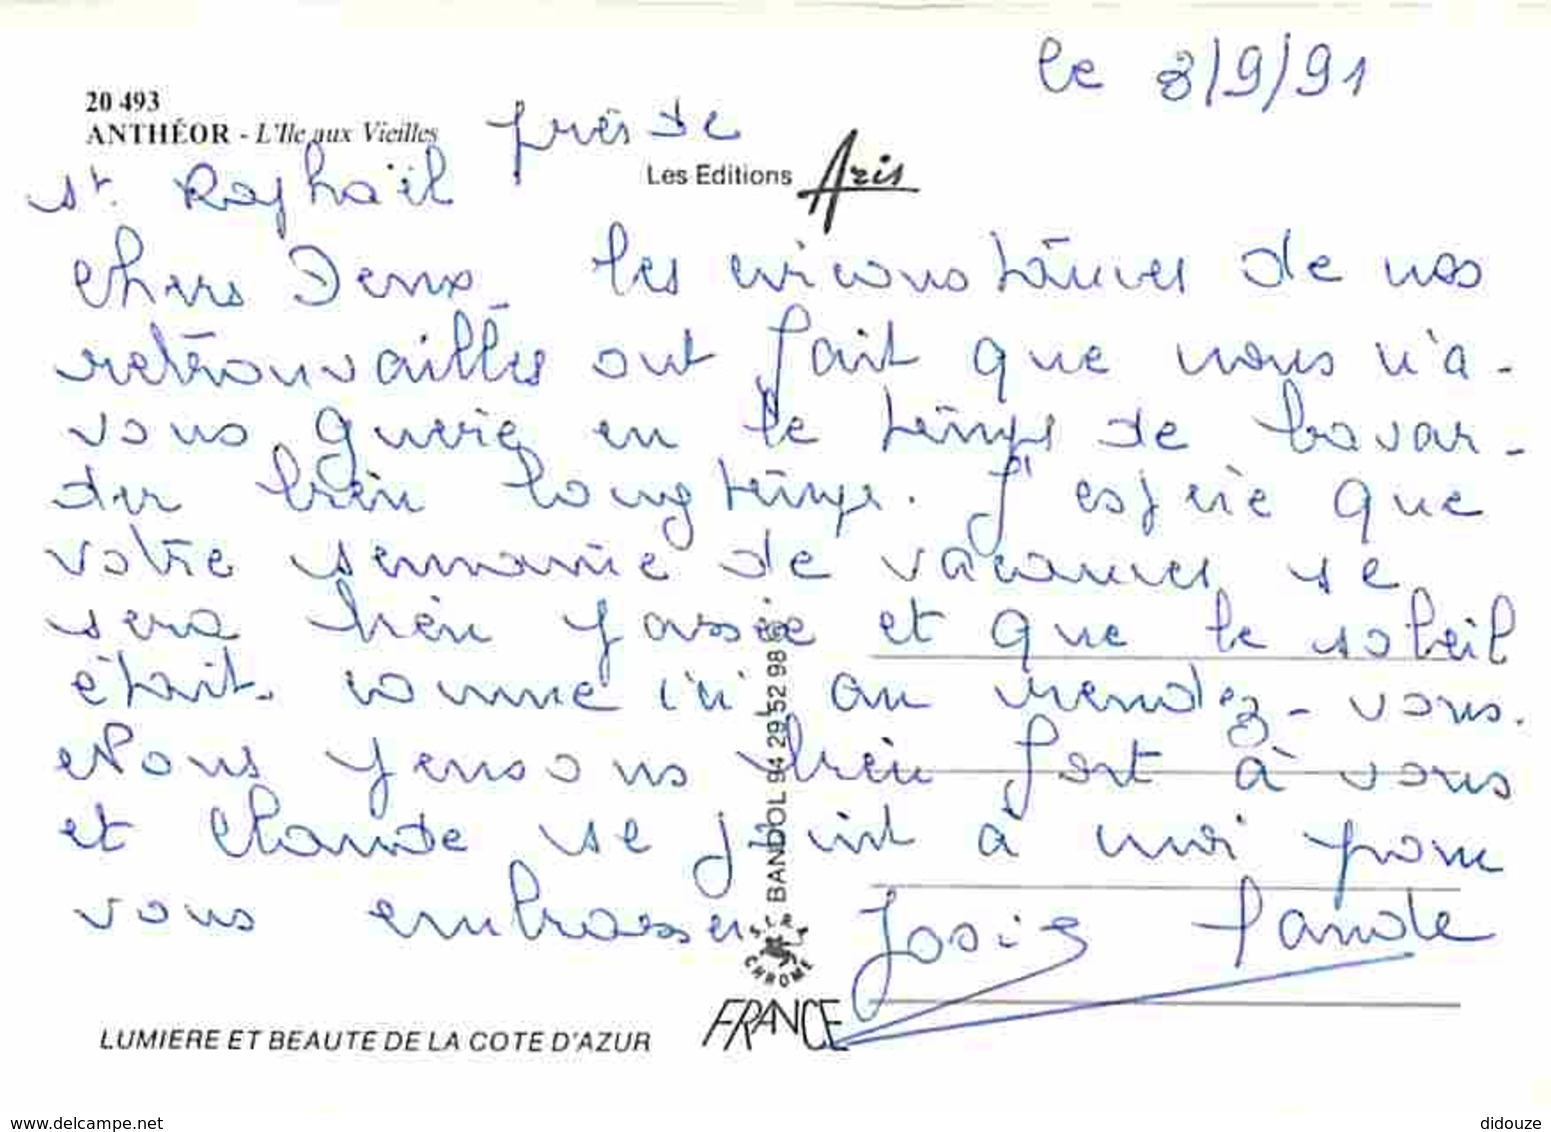 le 3/9/91
20 493
ANTHÉOR - L'Ile aux Vieilles près de
Les Editions Aris
St. Raphaël
Chers Deux, les circonstances de nos
retrouvailles ont fait que nous n'a-
vons guère eu le temps de bavar-
der bien longtemps. J'espère que
votre semaine de vacances se
sera bien passée et que le soleil
était comme ici au rendez-vous.
Nous pensons bien fort à vous
et Claude se joint à moi pour
vous embrasser Josie
BANDOL 94 29 52 98
CHROME
FRANCE
LUMIERE ET BEAUTE DE LA COTE D'AZUR
www.delcampe.net
didouze